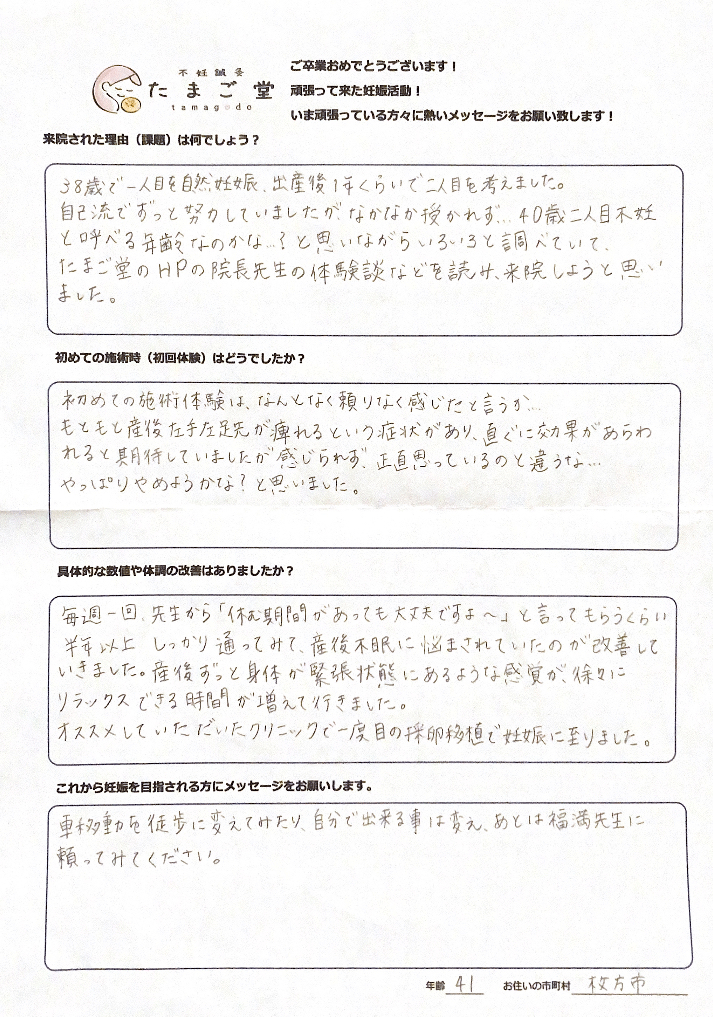 不妊鍼灸
たまご堂
tamagodo
ご卒業おめでとうございます！
頑張って来た妊娠活動！
いま頑張っている方々に熱いメッセージをお願い致します！
来院された理由（課題）は何でしょう？
38歳で一人目を自然妊娠、出産後1年くらいで二人目を考えました。
自己流でずっと努力していましたが、なかなか授かれず…40歳二人目不妊
と呼べる年齢なのかな…？と思いながらいろいろと調べていて、
たまご堂のHPの院長先生の体験談などを読み、来院しようと思い
ました。
初めての施術時（初回体験）はどうでしたか？
初めての施術体験は、なんとなく頼りなく感じたと言うか…
もともと産後左手左足先が痺れるという症状があり、直ぐに効果があらわ
れると期待していましたが感じられず、正直思っているのと違うな…
やっぱりやめようかな？と思いました。
具体的な数値や体調の改善はありましたか？
毎週一回、先生から「休む期間があっても大丈夫ですよ～」と言ってもらうくらい
半年以上 しっかり通ってみて、産後不眠に悩まされていたのが改善して
いきました。産後ずっと身体が緊張状態にあるような感覚が、徐々に
リラックスできる時間が増えて行きました。
オススメしていただいたクリニックで一度目の採卵移植で妊娠に至りました。
これから妊娠を目指される方にメッセージをお願いします。
車移動を徒歩に変えてみたり、自分で出来る事は変え、あとは福満先生に
頼ってみてください。
年齢 41 お住いの市町村 枚方市